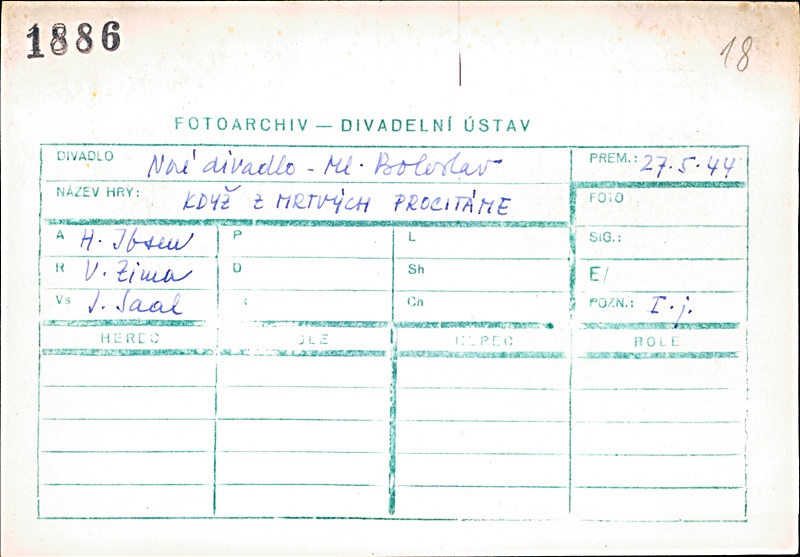 1886
18
FOTOARCHIV — DIVADELNÍ ÚSTAV
DIVADLO Nové divadlo - Ml. Boleslav PREM.: 27.5.44
NÁZEV HRY: KDYŽ Z MRTVÝCH PROCITÁME FOTO
A H. Ibsen P L SIG.:
R V. Zima D Sh E/
Vs J. Saal K Cn POZN.: I.j.
HEREC ROLE HEREC ROLE